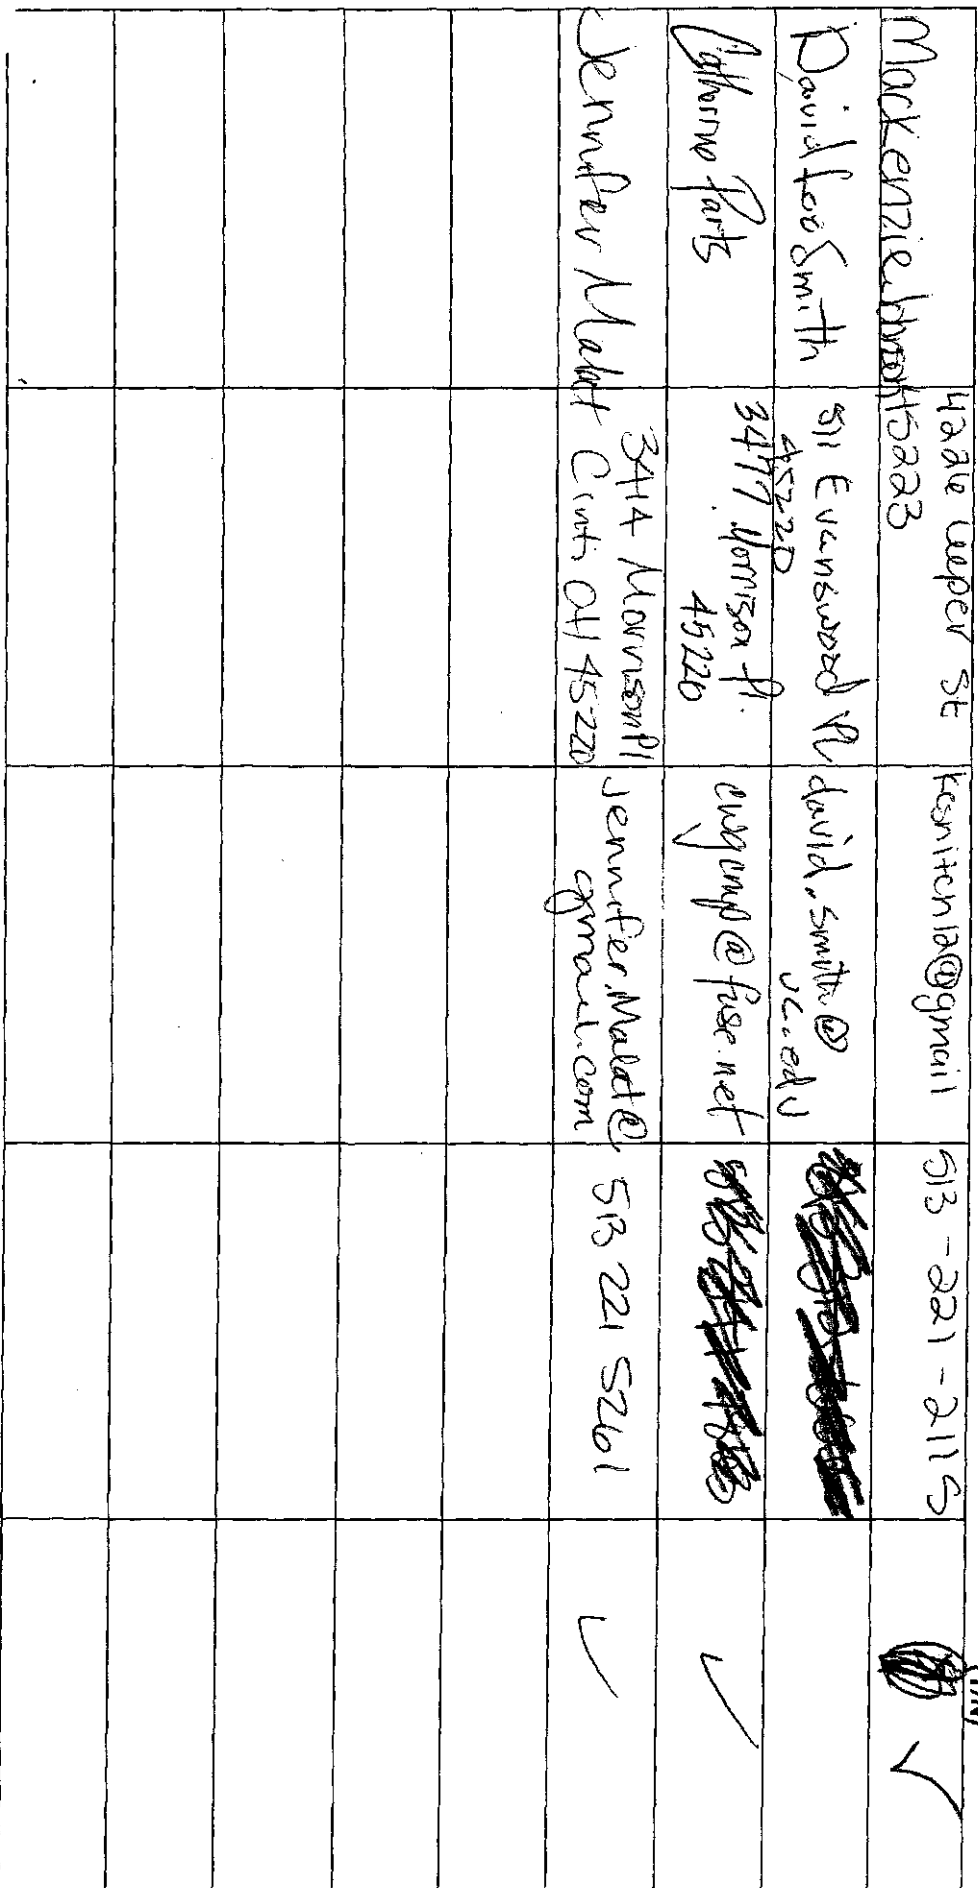 (Y/N)
Mackenzie
4226 Leeper St
45223
kesniten12@gmail
513-221-2115
✓
David Lee Smith
511 Evanswood Pl
45220
david.smith@
uc.edu
Catherine Parts
3477 Morrison Pl.
45220
cwgump@fuse.net
✓
Jennifer Malat
3414 Morrison Pl
Cinti OH 45220
Jennifer.Malat@
gmail.com
513 221 5261
✓